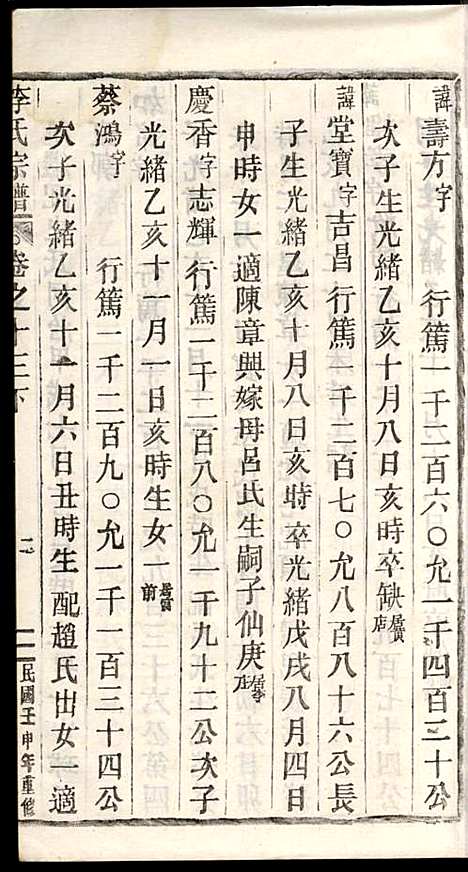 諱壽方字 行篤一千二百六〇允一千四百三十公
次子生光緒乙亥十月八日亥時卒缺居黃店
諱堂寶字吉昌行篤一千二百七〇允八百八十六公長
子生光緒乙亥十月八日亥時卒光緒戊戌八月一日
申時女一適陳章興嫁母呂氏生嗣子仙庚
慶香字志輝行篤一千二百八〇允一千九十二公次子
光緒乙亥十一月一日亥時生女一
蔡鴻字 行篤一千二百九〇允一千一百三十四公
次子光緒乙亥十一月六日丑時生配趙氏出女一適
李氏宗譜 卷之十三下 二 民國壬申年重修